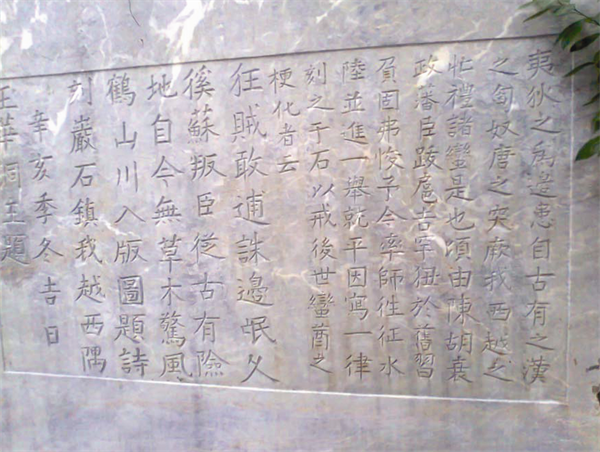 夷狄之為邊患自古有之漢
之匈奴唐之突厥我西越之
忙禮諸蠻是也頃由陳胡衰
政藩臣跋扈吉罕狃於舊習
貟固弗悛予今率師徃征水
陸並進一舉就平因寫一律
刻之于石以戒後世蠻酋之
梗化者云
狂賊敢逋誅邊氓久
徯蘇叛臣從古有險
地自今無草木驚風
鶴山川入版圖題詩
刻巖石鎮我越西隅
辛亥季冬吉日
玉華洞主題